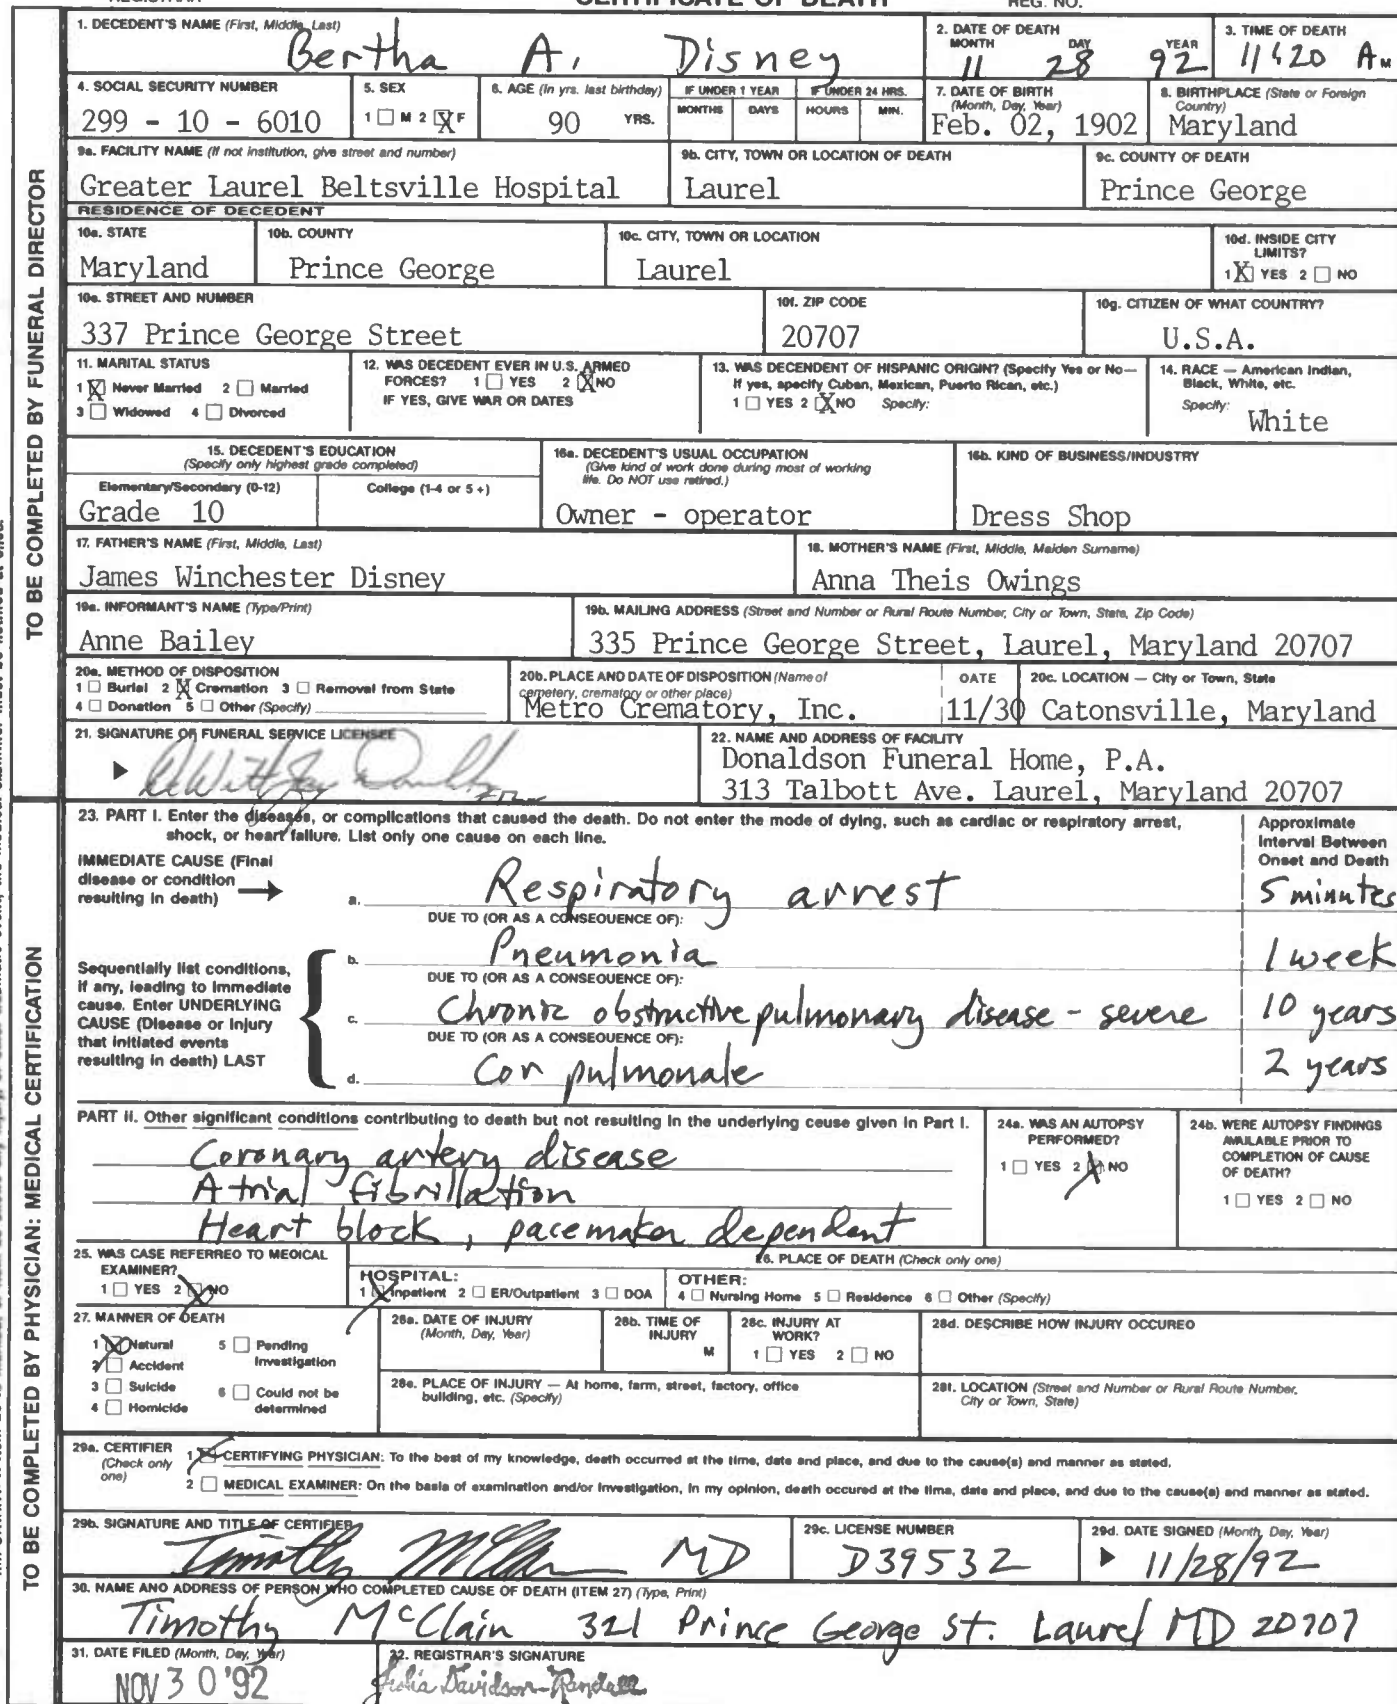 CERTIFICATE OF DEATH
REG. NO.
REGISTRAR
1. DECEDENT'S NAME (First, Middle, Last)
Bertha A. Disney
2. DATE OF DEATH
MONTH DAY YEAR
11 28 92
3. TIME OF DEATH
11:20 A M
4. SOCIAL SECURITY NUMBER
299 - 10 - 6010
5. SEX
1 ☐ M 2 ☒ F
6. AGE (in yrs. last birthday)
90 YRS.
IF UNDER 1 YEAR
MONTHS DAYS
IF UNDER 24 HRS.
HOURS MIN.
7. DATE OF BIRTH
(Month, Day, Year)
Feb. 02, 1902
8. BIRTHPLACE (State or Foreign
Country)
Maryland
9a. FACILITY NAME (If not institution, give street and number)
Greater Laurel Beltsville Hospital
9b. CITY, TOWN OR LOCATION OF DEATH
Laurel
9c. COUNTY OF DEATH
Prince George
RESIDENCE OF DECEDENT
10a. STATE
Maryland
10b. COUNTY
Prince George
10c. CITY, TOWN OR LOCATION
Laurel
10d. INSIDE CITY
LIMITS?
1 ☒ YES 2 ☐ NO
10e. STREET AND NUMBER
337 Prince George Street
10f. ZIP CODE
20707
10g. CITIZEN OF WHAT COUNTRY?
U.S.A.
11. MARITAL STATUS
1 ☒ Never Married 2 ☐ Married
3 ☐ Widowed 4 ☐ Divorced
12. WAS DECEDENT EVER IN U.S. ARMED
FORCES? 1 ☐ YES 2 ☒ NO
IF YES, GIVE WAR OR DATES
13. WAS DECENDENT OF HISPANIC ORIGIN? (Specify Yes or No—
If yes, specify Cuban, Mexican, Puerto Rican, etc.)
1 ☐ YES 2 ☒ NO Specify:
14. RACE — American Indian,
Black, White, etc.
Specify:
White
15. DECEDENT'S EDUCATION
(Specify only highest grade completed)
Elementary/Secondary (0-12)
Grade 10
College (1-4 or 5+)
16a. DECEDENT'S USUAL OCCUPATION
(Give kind of work done during most of working
life. Do NOT use retired.)
Owner - operator
16b. KIND OF BUSINESS/INDUSTRY
Dress Shop
17. FATHER'S NAME (First, Middle, Last)
James Winchester Disney
18. MOTHER'S NAME (First, Middle, Maiden Surname)
Anna Theis Owings
19a. INFORMANT'S NAME (Type/Print)
Anne Bailey
19b. MAILING ADDRESS (Street and Number or Rural Route Number, City or Town, State, Zip Code)
335 Prince George Street, Laurel, Maryland 20707
20a. METHOD OF DISPOSITION
1 ☐ Burial 2 ☒ Cremation 3 ☐ Removal from State
4 ☐ Donation 5 ☐ Other (Specify)
20b. PLACE AND DATE OF DISPOSITION (Name of
cemetery, crematory or other place)
Metro Crematory, Inc.
DATE
11/30
20c. LOCATION — City or Town, State
Catonsville, Maryland
21. SIGNATURE OF FUNERAL SERVICE LICENSEE
22. NAME AND ADDRESS OF FACILITY
Donaldson Funeral Home, P.A.
313 Talbott Ave. Laurel, Maryland 20707
TO BE COMPLETED BY FUNERAL DIRECTOR
23. PART I. Enter the diseases, or complications that caused the death. Do not enter the mode of dying, such as cardiac or respiratory arrest,
shock, or heart failure. List only one cause on each line.
Approximate
Interval Between
Onset and Death
IMMEDIATE CAUSE (Final
disease or condition
resulting in death)
a. Respiratory arrest 5 minutes
DUE TO (OR AS A CONSEQUENCE OF):
b. Pneumonia 1 week
DUE TO (OR AS A CONSEQUENCE OF):
c. Chronic obstructive pulmonary disease - severe 10 years
DUE TO (OR AS A CONSEQUENCE OF):
d. Cor pulmonale 2 years
Sequentially list conditions,
if any, leading to immediate
cause. Enter UNDERLYING
CAUSE (Disease or injury
that initiated events
resulting in death) LAST
PART II. Other significant conditions contributing to death but not resulting in the underlying cause given in Part I.
Coronary artery disease
Atrial fibrillation
Heart block, pacemaker dependent
24a. WAS AN AUTOPSY
PERFORMED?
1 ☐ YES 2 ☒ NO
24b. WERE AUTOPSY FINDINGS
AVAILABLE PRIOR TO
COMPLETION OF CAUSE
OF DEATH?
1 ☐ YES 2 ☐ NO
25. WAS CASE REFERRED TO MEDICAL
EXAMINER?
1 ☐ YES 2 ☒ NO
26. PLACE OF DEATH (Check only one)
HOSPITAL:
1 ☒ Inpatient 2 ☐ ER/Outpatient 3 ☐ DOA
OTHER:
4 ☐ Nursing Home 5 ☐ Residence 6 ☐ Other (Specify)
27. MANNER OF DEATH
1 ☒ Natural 5 ☐ Pending
Investigation
2 ☐ Accident
3 ☐ Suicide 6 ☐ Could not be
determined
4 ☐ Homicide
28a. DATE OF INJURY
(Month, Day, Year)
28b. TIME OF
INJURY
M
28c. INJURY AT
WORK?
1 ☐ YES 2 ☐ NO
28d. DESCRIBE HOW INJURY OCCURED
28e. PLACE OF INJURY — At home, farm, street, factory, office
building, etc. (Specify)
28f. LOCATION (Street and Number or Rural Route Number,
City or Town, State)
29a. CERTIFIER
(Check only
one)
1 ☒ CERTIFYING PHYSICIAN: To the best of my knowledge, death occurred at the time, date and place, and due to the cause(s) and manner as stated.
2 ☐ MEDICAL EXAMINER: On the basis of examination and/or investigation, in my opinion, death occured at the time, date and place, and due to the cause(s) and manner as stated.
29b. SIGNATURE AND TITLE OF CERTIFIER
Timothy McClain MD
29c. LICENSE NUMBER
D39532
29d. DATE SIGNED (Month, Day, Year)
11/28/92
30. NAME AND ADDRESS OF PERSON WHO COMPLETED CAUSE OF DEATH (ITEM 27) (Type, Print)
Timothy McClain 321 Prince George St. Laurel MD 20707
31. DATE FILED (Month, Day, Year)
NOV 30 '92
32. REGISTRAR'S SIGNATURE
Julia Davidson-Randall
TO BE COMPLETED BY PHYSICIAN: MEDICAL CERTIFICATION